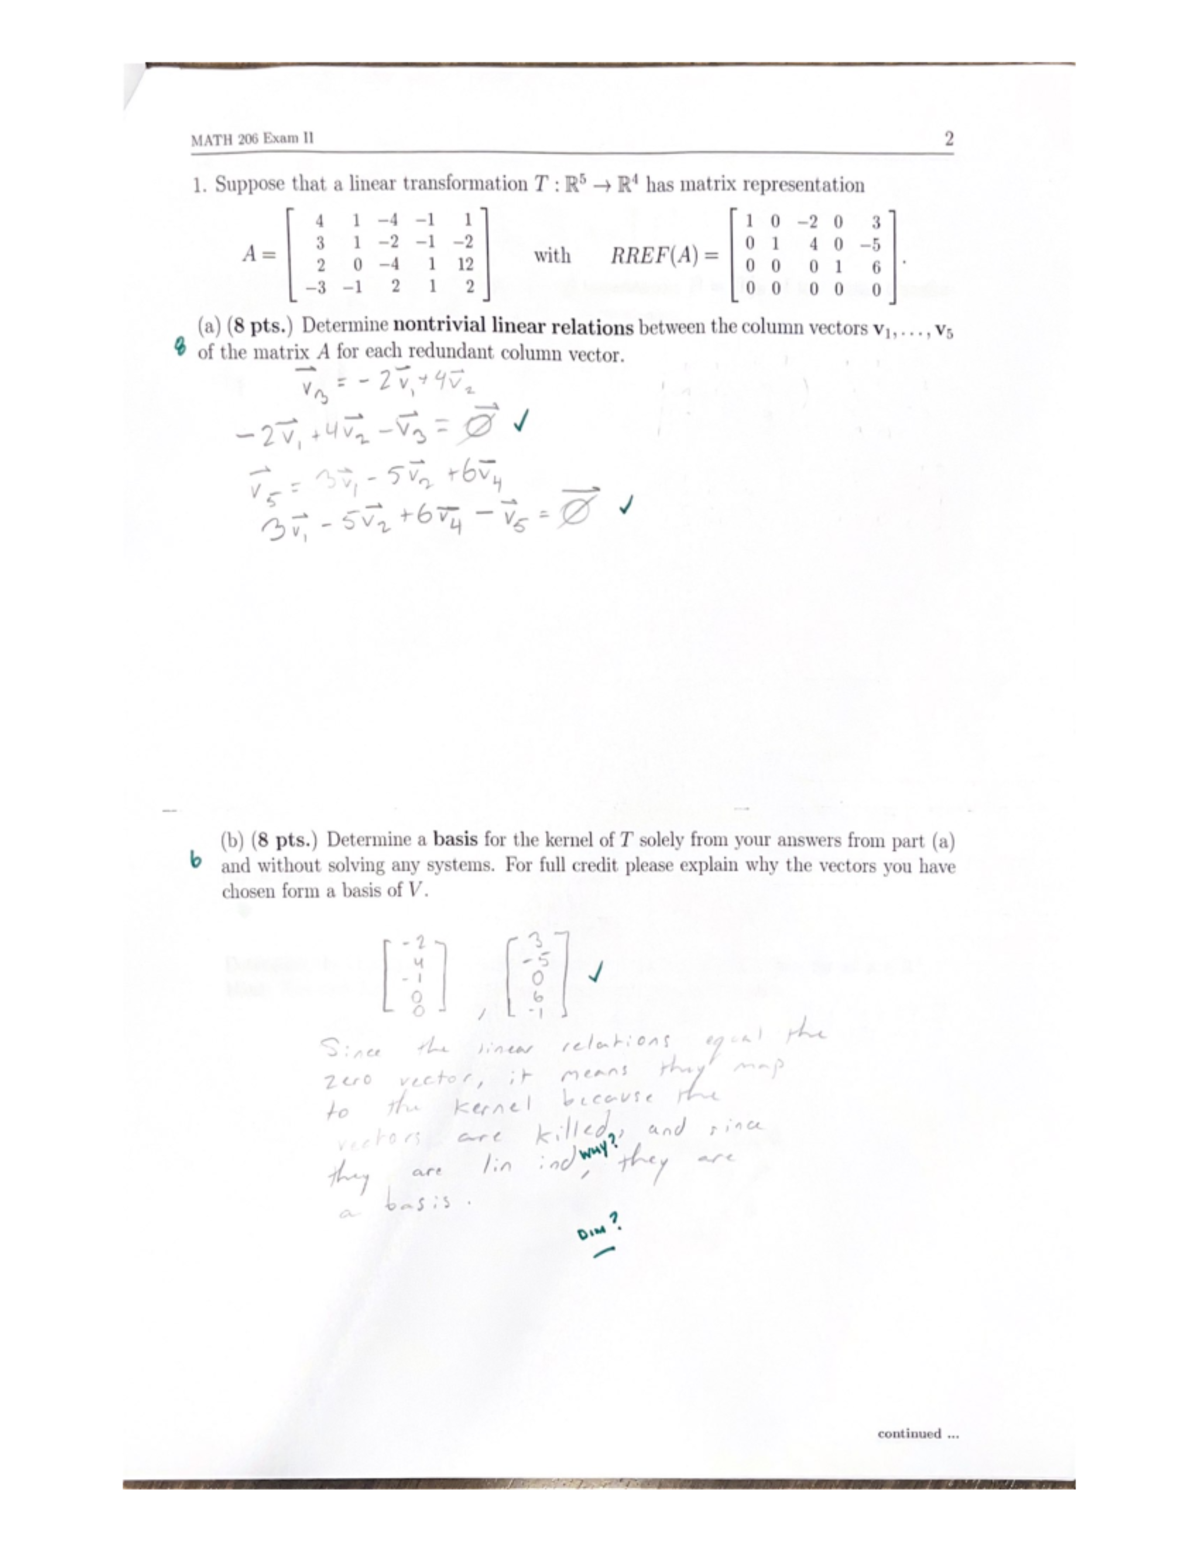 MATH 206 Exam II 2
1. Suppose that a linear transformation T : R⁵ → R⁴ has matrix representation
A = [ 4 1 −4 −1 1 ; 3 1 −2 −1 −2 ; 2 0 −4 1 12 ; −3 −1 2 1 2 ] with RREF(A) = [ 1 0 −2 0 3 ; 0 1 4 0 −5 ; 0 0 0 1 6 ; 0 0 0 0 0 ] .
(a) (8 pts.) Determine nontrivial linear relations between the column vectors v₁, . . . , v₅
8 of the matrix A for each redundant column vector.
v⃗₃ = −2v⃗₁ + 4v⃗₂
−2v⃗₁ + 4v⃗₂ − v⃗₃ = ∅⃗ ✓
v⃗₅ = 3v⃗₁ − 5v⃗₂ + 6v⃗₄
3v⃗₁ − 5v⃗₂ + 6v⃗₄ − v⃗₅ = ∅⃗ ✓
(b) (8 pts.) Determine a basis for the kernel of T solely from your answers from part (a)
6 and without solving any systems. For full credit please explain why the vectors you have
chosen form a basis of V.
[ −2 ; 4 ; −1 ; 0 ; 0 ] , [ 3 ; −5 ; 0 ; 6 ; −1 ] ✓
Since the linear relations equal the
zero vector, it means they map
to the kernel because the
vectors are killed, and since
they are lin ind, WHY? they are
a basis.
DIM?
continued ...